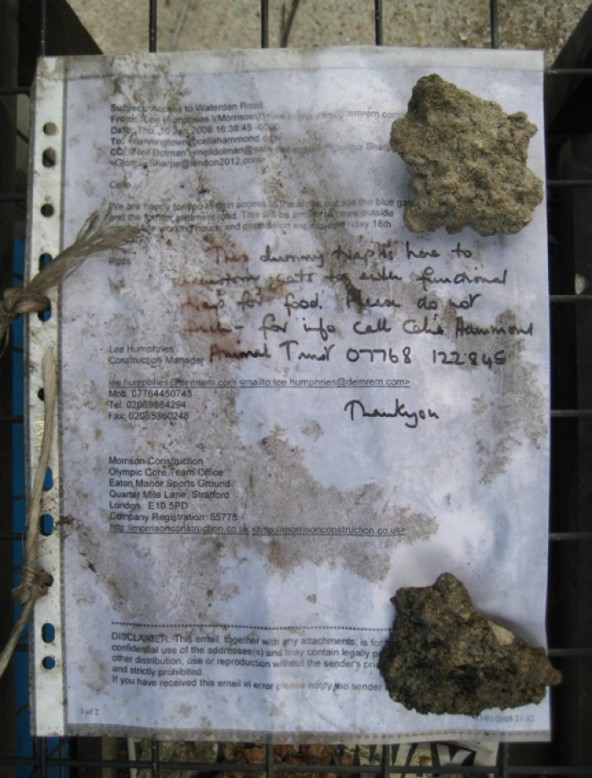 Subject: Access to Waterden Road
From: "Lee Humphries \(Morrison\)"
Date: Thu, 10 Jan 2008 16:38:45
To:
CC: "Neil Dolman"
Sharpe@london2012.com>
Celia
We are happy for you to gain access to the use the blue
and the former allotment road. This will be outside
working hours, and 18th
This dummy trap is here to
accustom cats to enter functional
trap for food. Please do not
touch - for info call Celia Hammond
Animal Trust 07768 122845
Thankyou
Lee Humphries
Construction Manager
lee.humphries@demrem.com <mailto:lee.humphries@demrem.com>
Mob: 07764450745
Tel: 02089864294
Fax: 02085360248
Morrison Construction
Olympic Core Team Office
Eaton Manor Sports Ground
Quarter Mile Lane, Stratford
London E10 5PD
Company Registration: 55775
http://morrisonconstruction.co.uk <http://morrisonconstruction.co.uk>
DISCLAIMER: This email, together with any attachments, is for
confidential use of the addressee(s) and may contain legally
other distribution, use or reproduction without the sender's
and strictly prohibited.
If you have received this email in error please notify the sender
1 of 2